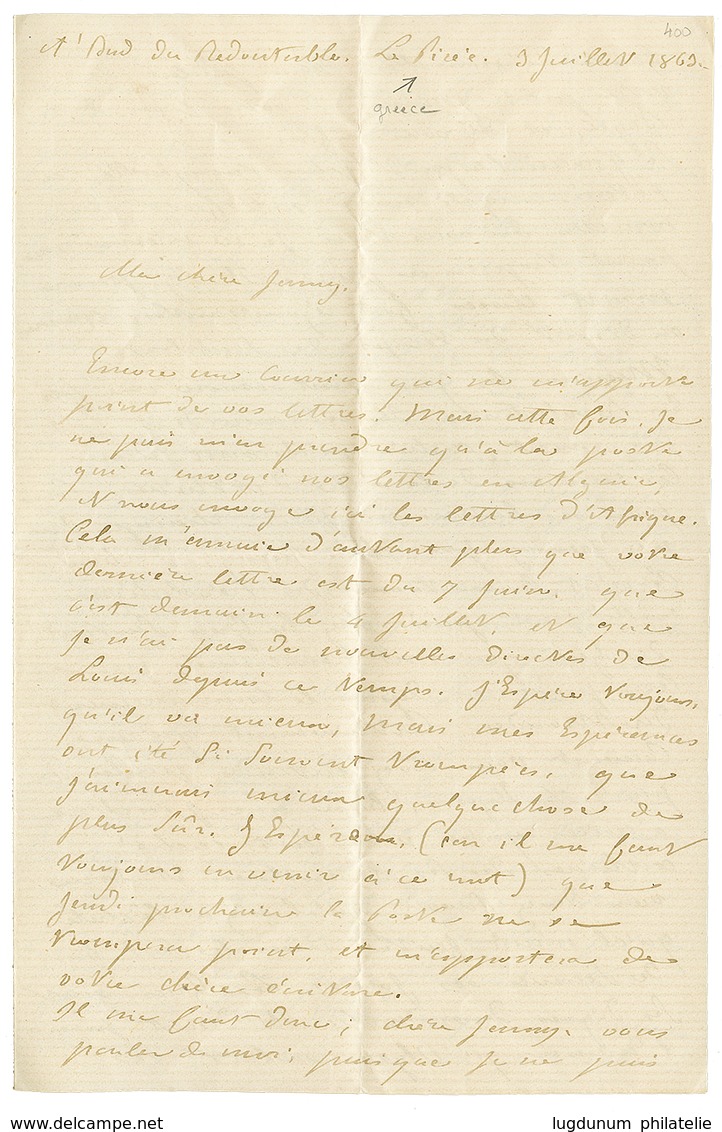 400
A' Bord du Redoutable. Le Pirée. 3 Juillet 1863.
greece
Ma chère Jenny.
Encore un Courrier qui ne m'apporte
point de vos lettres. Mais cette fois, Je
ne puis m'en prendre qu'à la poste
qui a envoyé nos lettres en Algérie,
et nous envoye ici les lettres d'Afrique.
Cela m'ennuie d'autant plus que votre
dernière lettre est du 7 Juin, que
c'est demain le 4 Juillet, et que
Je n'ai pas de nouvelles directes de
Louis depuis ce temps. J'Espère toujours,
qu'il va mieux, mais mes Espérances
ont été si souvent trompées, que
j'aimerais mieux quelque chose de
plus sûr. J'Espère, (car il me faut
toujours en venir à ce mot) que
Jeudi prochain la Poste ne se
trompera point, et m'apportera de
votre chère écriture.
Il me faut donc, chère Jenny, vous
parler de moi, puisque Je ne puis
www.delcampe.net
lugdunum philatelie